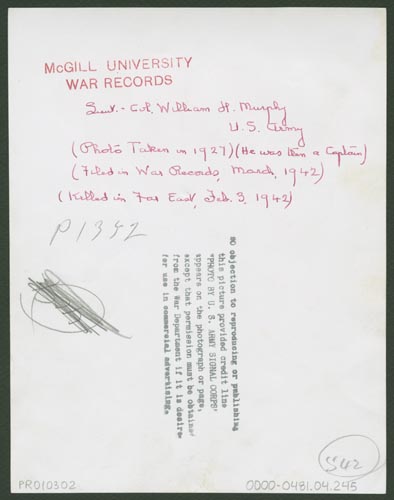 McGILL UNIVERSITY
WAR RECORDS
Lieut.- Col. William H. Murphy
U.S. Army
(Photo Taken in 1927) (He was then a Captain)
(Filed in War Records, March, 1942)
(Killed in Far East, Feb. 3, 1942)
P1342
NO objection to reproducing or publishing
this picture provided credit line
"PHOTO BY U. S. ARMY SIGNAL CORPS"
appears on the photograph or page,
except that permission must be obtained
from the War Department if it is desire
for use in commercial advertising.
5542
PR010302
0000-0481.04.245